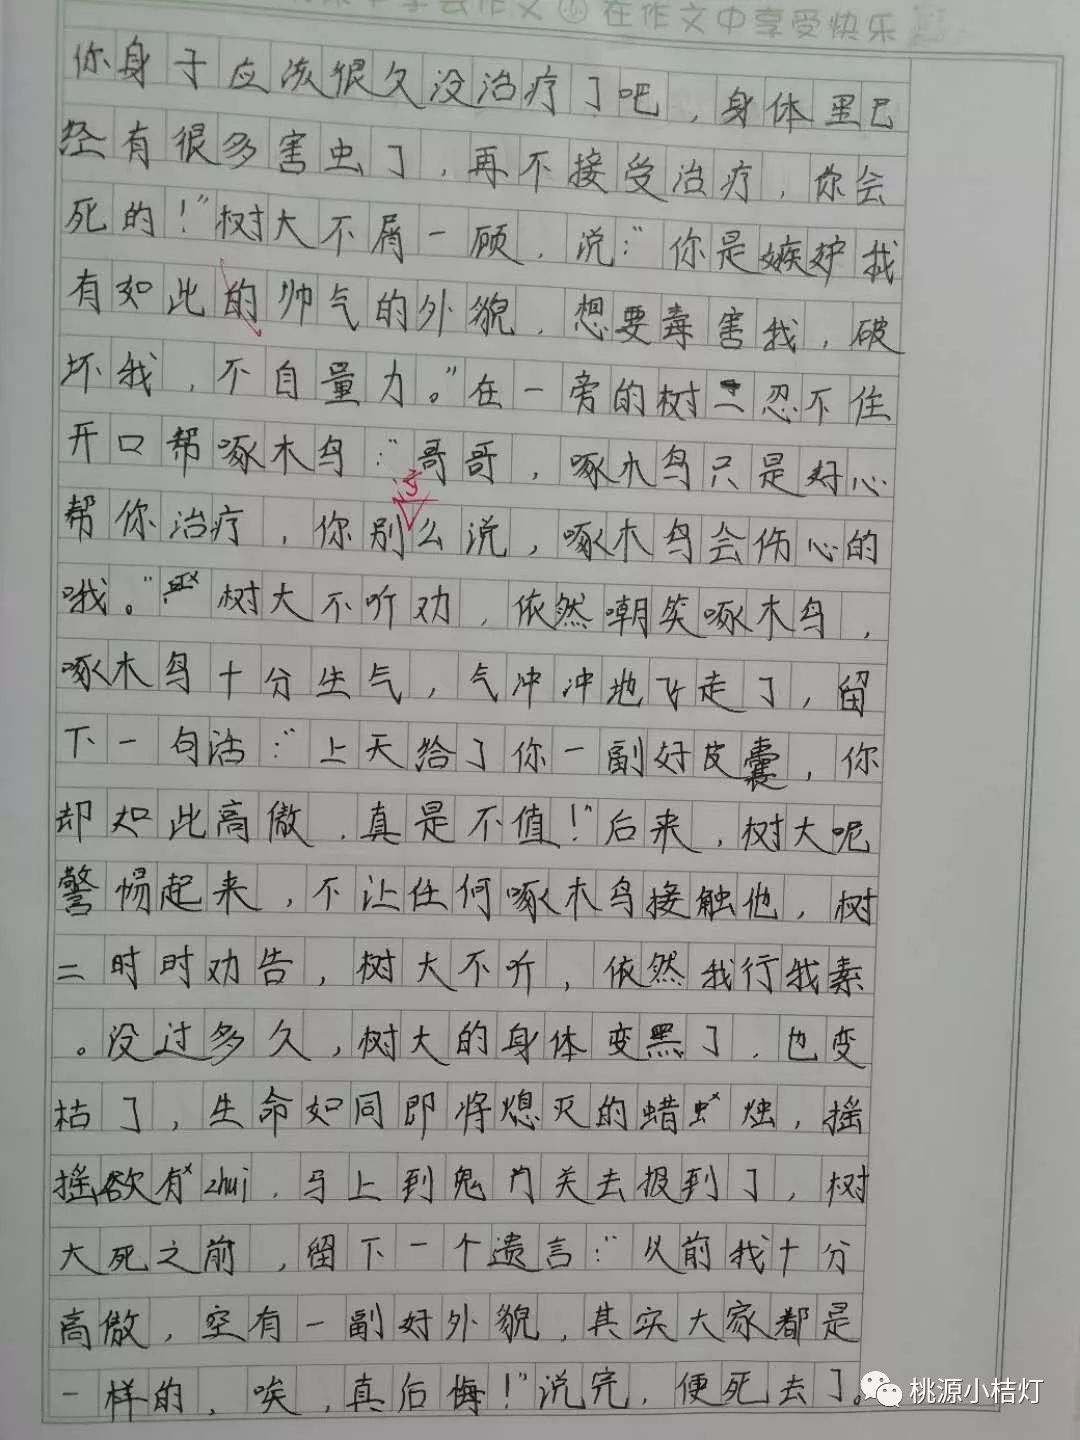 在作文中享受快乐
你身于应该很久没治疗了吧，身体里已
经有很多害虫了，再不接受治疗，你会
死的！"树大不屑一顾，说："你是嫉妒我
有如此的帅气的外貌，想要毒害我，破
坏我，不自量力。"在一旁的树二忍不住
开口帮啄木鸟："哥哥，啄木鸟只是好心
这
帮你治疗，你别么说，啄木鸟会伤心的
哦。"树大不听劝，依然嘲笑啄木鸟，
啄木鸟十分生气，气冲冲地飞走了，留
下一句话："上天给了你一副好皮囊，你
却如此高傲，真是不值！"后来，树大呢
警惕起来，不让任何啄木鸟接触他，树
二时时劝告，树大不听，依然我行我素
。没过多久，树大的身体变黑了，也变
枯了，生命如同即将熄灭的蜡烛，摇
摇欲有zhui，马上到鬼门关去报到了，树
大死之前，留下一个遗言："以前我十分
高傲，空有一副好外貌，其实大家都是
一样的，唉，真后悔！"说完，便死去了。
桃源小桔灯